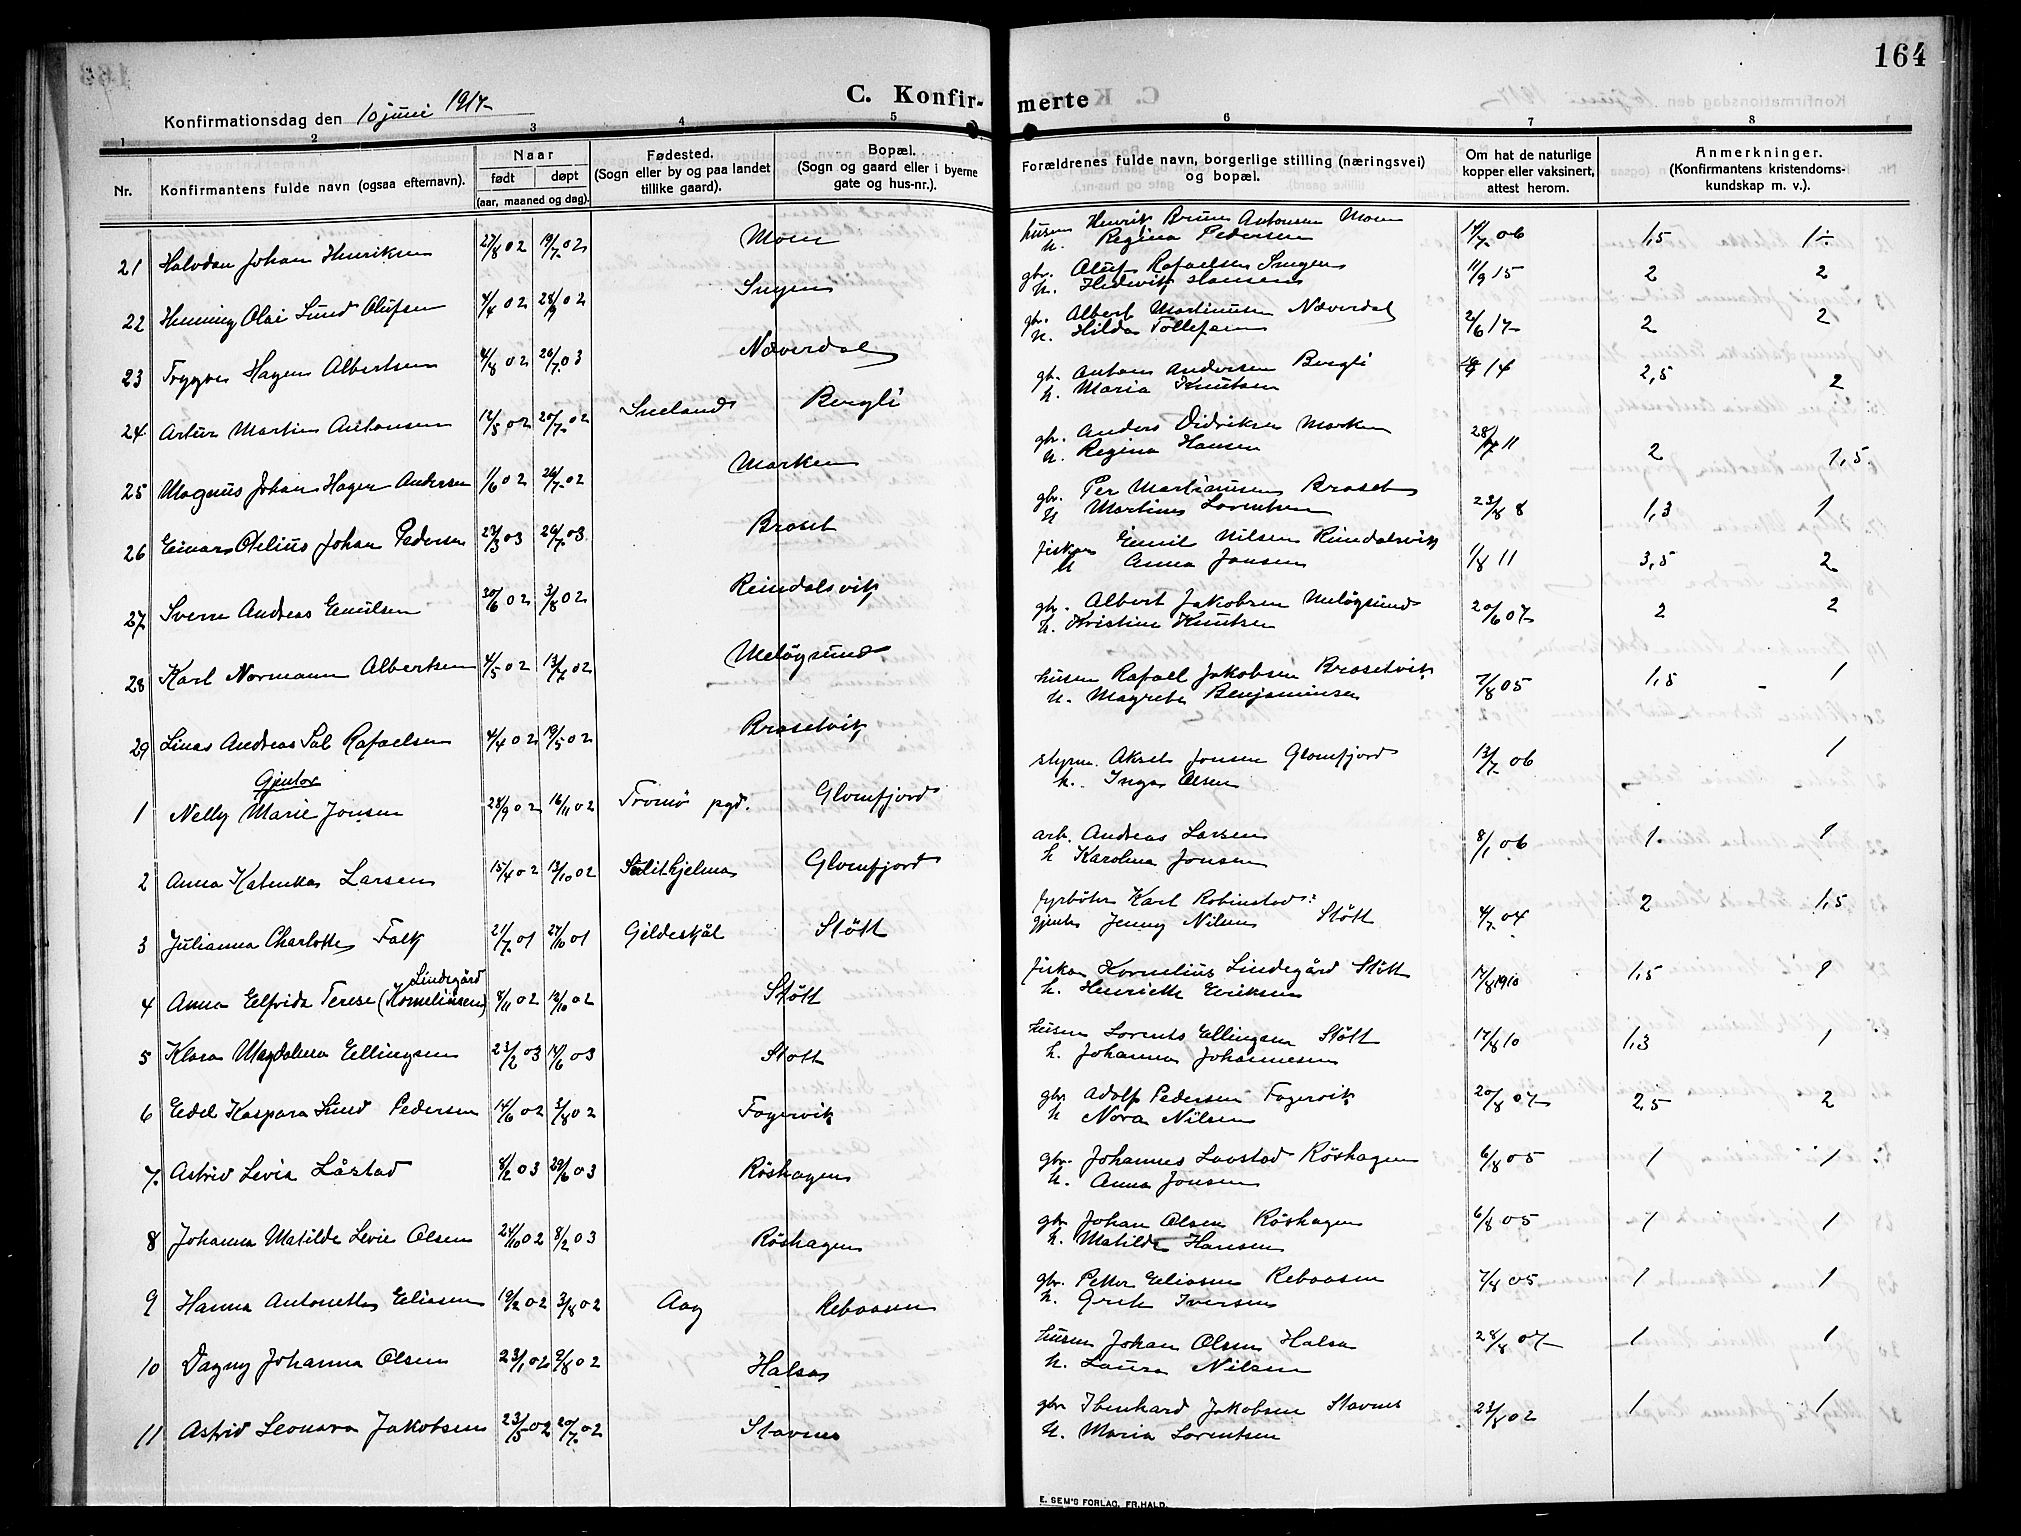 164
Konfirmationsdag den 10 juni 1917-
C. Konfir-
merte
1 2 3 4 5 6 7 8
Nr.
Konfirmantens fulde navn (ogsaa efternavn).
Naar
født
døpt
(aar, maaned og dag).
Fødested.
(Sogn eller by og paa landet
tillike gaard).
Bopæl.
(Sogn og gaard eller i byerne
gate og hus-nr.).
Forældrenes fulde navn, borgerlige stilling (næringsvei)
og bopæl.
Om hat de naturlige
kopper eller vaksinert,
attest herom.
Anmerkninger.
(Konfirmantens kristendoms-
kundskap m. v.).
21 Halvdan Johan Henriksen 27/8 02 19/7 02 Moen
husm Henrik Bruun Antonsen Moen
h. Regina Pedersen 14/7 06 1,5 1÷
22 Henning Olai Lund Olufsen 4/4 02 28/9 02
gbr. Oluf Rafaelsen
h. Hedevik Hansen 11/9 15 2 2
23 Trygve Hagen Albertsen 4/8 02 26/7 03 Næverdal
gbr. Albert Martinusen Næverdal
h. Hilda Tollefsen 2/6 17 2 2
24 Artur Martin Antonsen 12/5 02 20/7 02 Bergli
gb. Antons Andersen Bergli
h. Maria Knutsen 14 2,5 2
25 Magnus Johan Hagen Andersen 1/6 02 26/7 02 Marken
gbr. Anders Didriksen Marken
h. Regina Hansen 28/7 11 2 1,5
26 Einar Otelius Johan Pedersen 23/3 03 26/7 03 Braset
gbr. Per Martinusen Braset
h Martine Lorentsen 23/8 8 1,3 1
27 Sverre Andreas Emilsen 30/6 02 3/8 02 Reindalsvik
fisker Emil Nilsen Reindalsvik
h Anna Jonsen 1/8 11 3,5 2
28 Karl Normann Albertsen 4/5 02 13/7 02 Meløysund
gbr. Albert Jakobsen Meløysund
h. Kristine Knutsen 20/6 07 2 2
29 Linas Andreas Sal Rafaelsen 4/4 02 19/5 02 Brasetvik
husm Rafael Jakobsen Brasetvik
h. Magrete Benjaminsen 7/8 05 1,5 1
Gjenter
1 Nelly Marie Jonsen 28/9 02 16/11 02 Tromsø pgd. Glomfjord
styrm. Aksel Jonsen Glomfjord
h. Inga Olsen 13/7 06 1
2 Anna Katinka Larsen 15/4 02 13/10 02 Sulithjelma Glomfjord
arb. Andreas Larsen
h Karolina Jonsen 8/1 06 1. 1
3 Julianna Charlotte Falk 21/7 01 27/10 01 Gildeskål Støtt
fyrbøter Karl Robinstad:
gjente Jenny Nilsen Støtt 4/7 04 2 1,5
Lindegård
4 Anna Elfrida Terese (Korneliusen) 8/11 02 12/10 02 Støtt
fisker Kornelius Lindegård Støtt
h. Henriette Eriksen 17/8 1910 1,5 1
5 Klara Magdalena Ellingsen 23/2 03 14/6 03 Støtt
husm Lorents Ellingsen Støtt
h. Johanna Johannesen 17/8 10 1,3 1
6 Edel Kaspara Lind Pedersen 14/6 02 3/8 02 Fagervik
gbr Adolf Pedersen Fagervik
h Nora Nilsen 20/8 07 2,5 2
7. Astrid Levia Låstad 8/2 03 29/6 03 Röshagen
gbr. Johannes Laastad Röshagen
h. Anna Jonsen 6/8 05 1 1
8 Johanna Matilde Levie Olsen 24/10 02 8/2 03 Röshagen
gbr Johan Olsen Röshagen
h. Matilde Hansen 6/8 05 1 1
9 Hanna Antonetta Eliasen 19/2 02 3/8 02 Aag Reboasen
gbr. Petter Eliasen Reboasen
h. Grete Iversen 7/8 05 1 1
10 Dagny Johanna Olsen 23/1 02 9/8 02 Halsa
husm Johan Olsen Halsa
h. Laura Nilsen 28/8 07 1 1
11 Astrid Leonora Jakobsen 23/5 02 20/7 02 Stavnes
gbr Ibenhard Jakobsen Stavnes
h. Maria Lorentsen 23/8 02 1 1
E. SEM'S FORLAG, FR.HALD.